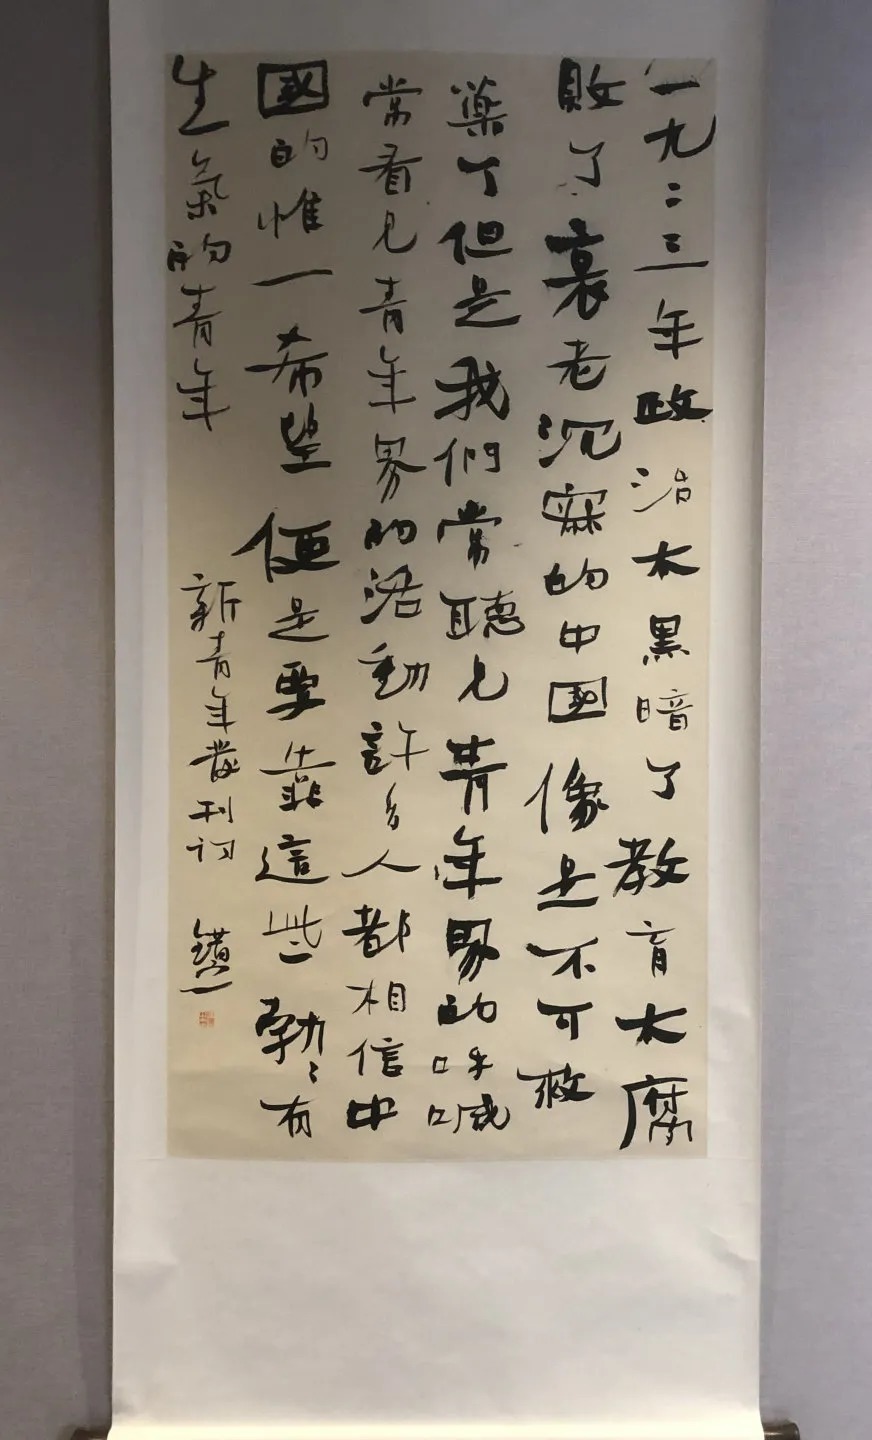 一九二三年政治太黑暗了教育太腐
敗了衰老沉寂的中國像是不可救
藥了但是我們常聽見青年界的呼喊
常看見青年界的活動許多人都相信中
國的惟一希望便是要靠這些勃〻有
生氣的青年
新青年發刊词